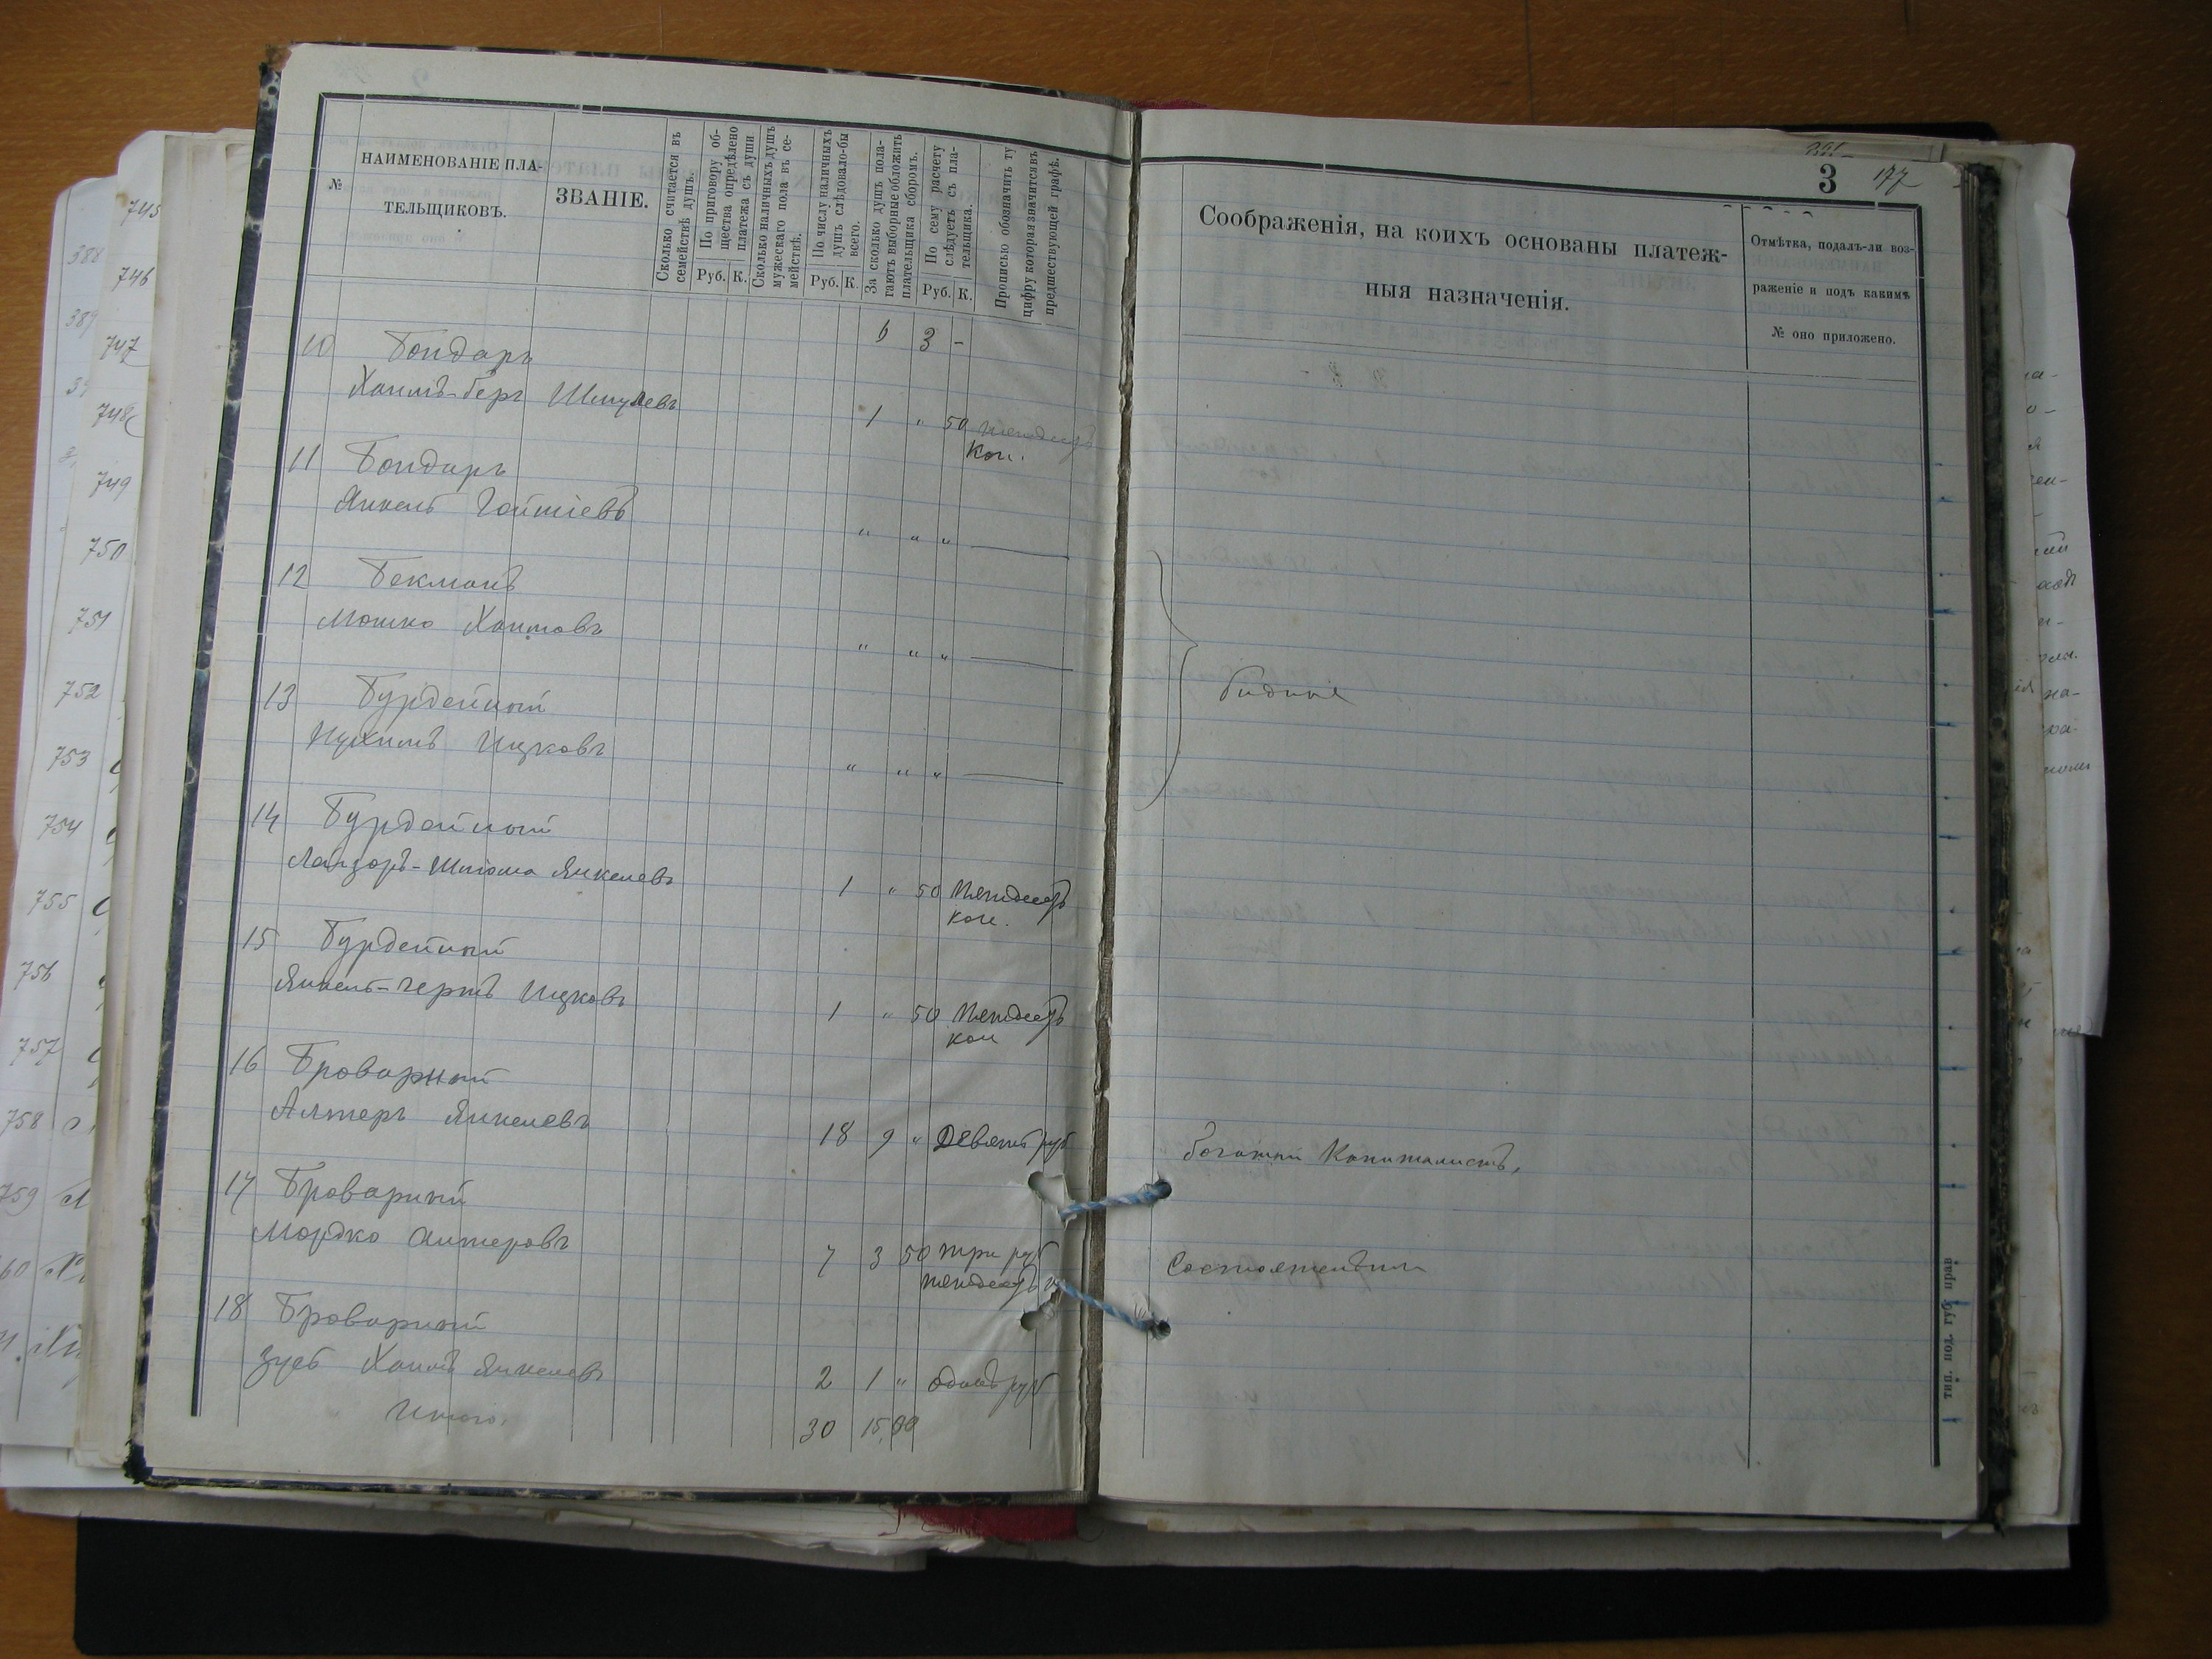 №
НАИМЕНОВАНІЕ ПЛА-
ТЕЛЬЩИКОВЪ.
ЗВАНІЕ.
Сколько считается въ
семействѣ душъ.
По приговору об-
щества опредѣлено
платежа съ души
Руб. К.
Сколько наличныхъ душъ
мужескаго пола въ се-
мействѣ.
По числу наличныхъ
душъ слѣдовало-бы
всего.
Руб. К.
За сколько душъ пола-
гаютъ выборные обложить
плательщика сборомъ.
По сему расчету
слѣдуетъ съ пла-
тельщика.
Руб. К.
Прописью обозначить ту
цифру которая значится въ
предшествующей графѣ.
6 3 -
10 Бондарь
Хаимъ-Беръ Шмулевъ
1 " 50 пятьдесятъ
коп.
11 Бондарь
Янкель
" " "
12 Бекманъ
Мошко Хаимовъ
" " "
13 Бурдейный
Нухимъ Ицковъ
" " "
14 Бурдейный
Лайзоръ-Шлiома Янкелевъ
1 " 50 Пятьдесятъ
коп.
15 Бурдейный
Янкель-Гершъ Ицковъ
1 " 50 Пятьдесятъ
коп
16 Броварный
Алтеръ Янкелевъ
18 9 " Девять руб
17 Броварный
Мордко Алтеровъ
7 3 50 три руб
пятьдесятъ к
18 Броварный
Зусь Хаимъ Янкелевъ
2 1 " одинъ руб
Итого.
30 15,00
3 177
Соображенія, на коихъ основаны платеж-
ныя назначенія.
Отмѣтка, подалъ-ли воз-
раженіе и подъ какимъ
№ оно приложено.
бидные
богатый Капиталистъ,
Состоятельный
тип. под. губ. прав
745
388
746
389
747
748
749
750
751
752
753
754
755
756
757
758
759
60